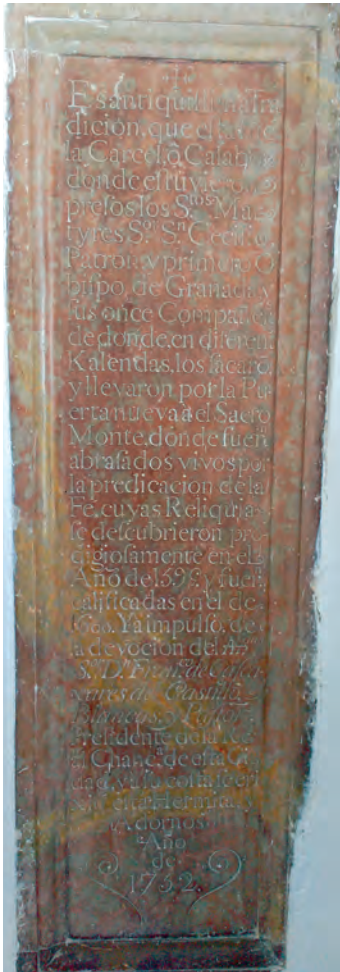 Es antiquissima tra
dicion, que este fue
la Carcel, ô Calabozo
donde estuvieron
presos los S.tos Mar
tyres S.r S.n Cecilio,
Patron, y primero O
bispo, de Granada, y
sus once Compañer
de donde, en diferen
Kalendas, los sacaro
y llevaron, por la Pu
erta nueva a el Sacro
Monte, donde fuen
abrasados vivos por
la predicacion de la
Fe, cuyas Reliquias
se descubrieron pro
digiosamente en el
Año de 1595, y fuen
calificadas en el de
1600. Y a impulso, de
la devocion del
S.r D.n Fran.co de Casca
xares de Castillo,
y Pastor,
Presidente de la Re
al Chanc.a de esta Ciu
dad, y a su costa,
esta
Adorno
Año
de
1752.